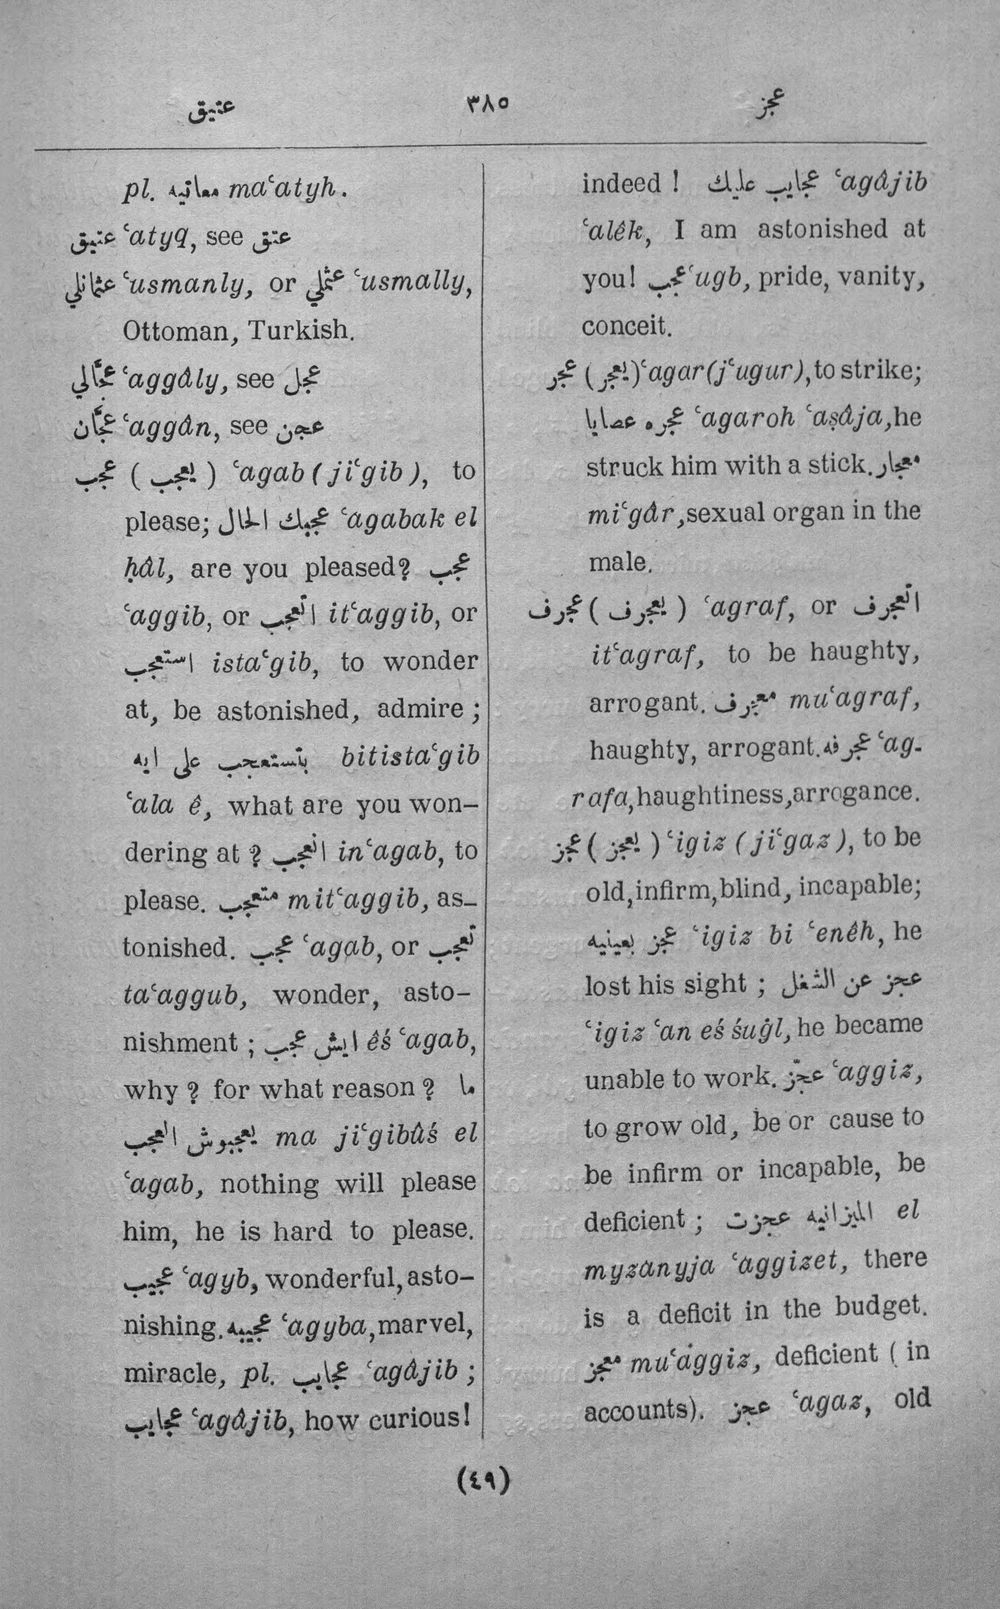 عتيق ٣٨٥ عجز
pl. معاتيه maʿatyh.
عتيق ʿatyq, see عتق
عثمانلي ʿusmanly, or عثملي ʿusmally,
Ottoman, Turkish.
عجّالي ʿaggâly, see عجل
عجّان ʿaggân, see عجن
عجب ( يعجب ) ʿagab (jiʿgib), to
please; عجبك الحال ʿagabak el
ḥâl, are you pleased? عجب
ʿaggib, or اتعجب itʿaggib, or
استعجب istaʿgib, to wonder
at, be astonished, admire;
بتستعجب على ايه bitistaʿgib
ʿala ê, what are you won-
dering at? انعجب inʿagab, to
please. متعجب mitʿaggib, as-
tonished. عجب ʿagab, or تعجب
taʿaggub, wonder, asto-
nishment; ايش عجب êś ʿagab,
why? for what reason? ما
يعجبوش العجب ma jiʿgibûś el
ʿagab, nothing will please
him, he is hard to please.
عجيب ʿagyb, wonderful, asto-
nishing. عجيبه ʿagyba, marvel,
miracle, pl. عجايب ʿagâjib;
عجايب ʿagâjib, how curious!
indeed! عجايب عليك ʿagâjib
ʿalêk, I am astonished at
you! عجب ʿugb, pride, vanity,
conceit.
عجر ( يعجر ) ʿagar (jʿugur), to strike;
عجره عصايا ʿagaroh ʿaṣâja, he
struck him with a stick. معجار
miʿgâr, sexual organ in the
male.
عجرف ( يعجرف ) ʿagraf, or اتعجرف
itʿagraf, to be haughty,
arrogant. معجرف muʿagraf,
haughty, arrogant. عجرفه ʿag-
rafa, haughtiness, arrogance.
عجز ( يعجز ) ʿigiz (jiʿgaz), to be
old, infirm, blind, incapable;
عجز بعينيه ʿigiz bi ʿenêh, he
lost his sight; عجز عن الشغل
ʿigiz ʿan eś śuġl, he became
unable to work. عجّز ʿaggiz,
to grow old, be or cause to
be infirm or incapable, be
deficient; الميزانيه عجزت el
myzanyja ʿaggizet, there
is a deficit in the budget.
معجز muʿaggiz, deficient (in
accounts). عجز ʿagaz, old
(٤٩)